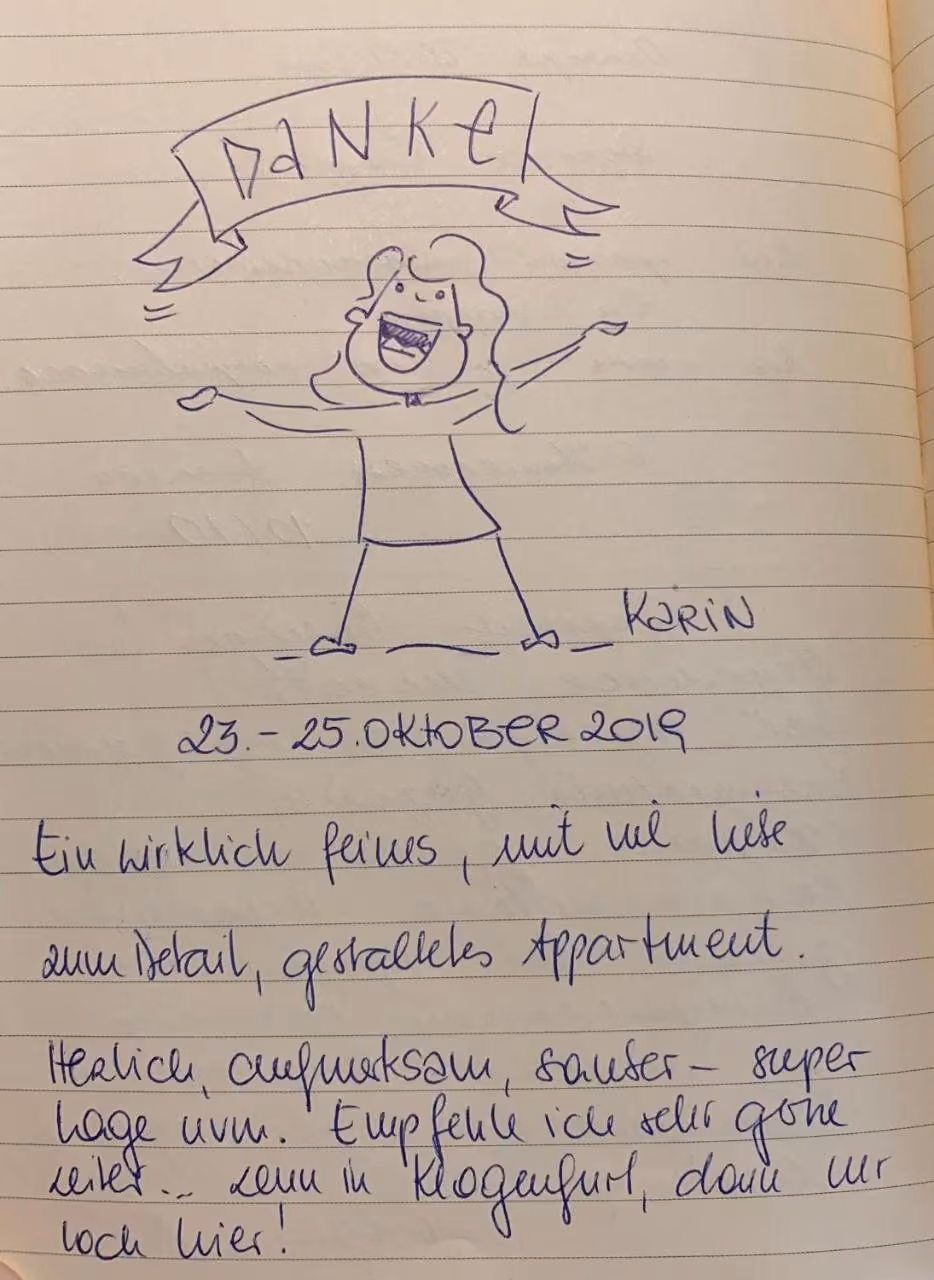 DANKE
KARIN
23. - 25. OKTOBER 2019
Ein wirklich feines, mit viel Liebe
zum Detail, gestaltetes Appartment.
Herzlich, aufmerksam, sauber - super
Lage uvm. Empfehle ich sehr gerne
weiter... wenn in Klagenfurt, dann nur
noch hier!